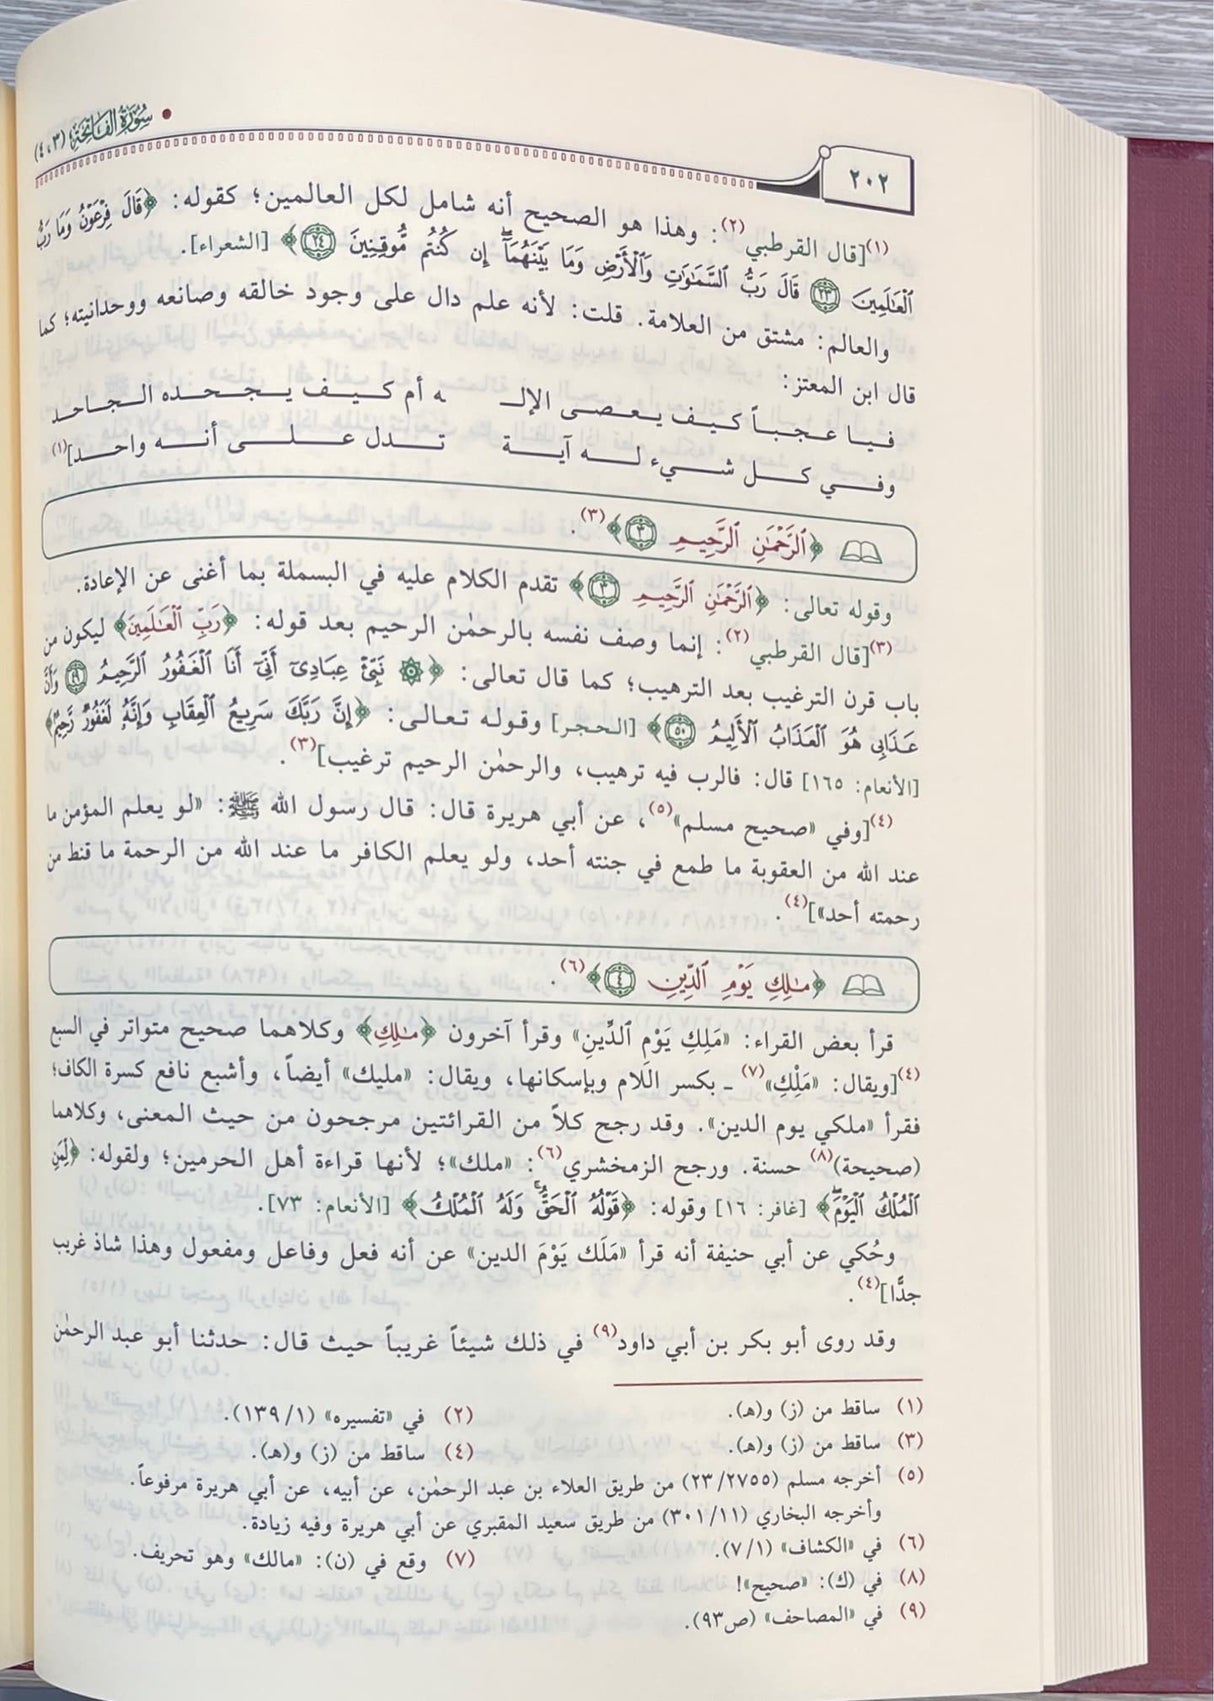 سُورَةُ الفَاتِحَةِ (٣، ٤)
٢٠٢
(١)[قال القرطبي(٢): وهذا هو الصحيح أنه شامل لكل العالمين؛ كقوله: ﴿قَالَ فِرْعَوْنُ وَمَا رَبُّ
ٱلْعَٰلَمِينَ ٢٣ قَالَ رَبُّ ٱلسَّمَٰوَٰتِ وَٱلْأَرْضِ وَمَا بَيْنَهُمَآۖ إِن كُنتُم مُّوقِنِينَ ٢٤﴾ [الشعراء].
والعالم: مشتق من العلامة. قلت: لأنه علم دال على وجود خالقه وصانعه ووحدانيته؛ كما
قال ابن المعتز:
فيا عجباً كيف يعصى الإلـ ـه أم كيف يجحده الجاحد
وفي كل شيء له آية تدل على أنه واحد](١)
﴿ٱلرَّحْمَٰنِ ٱلرَّحِيمِ ٣﴾(٣).
وقوله تعالى: ﴿ٱلرَّحْمَٰنِ ٱلرَّحِيمِ ٣﴾ تقدم الكلام عليه في البسملة بما أغنى عن الإعادة.
(٣)[قال القرطبي(٢): إنما وصف نفسه بالرحمٰن الرحيم بعد قوله: ﴿رَبِّ ٱلْعَٰلَمِينَ﴾ ليكون من
باب قرن الترغيب بعد الترهيب؛ كما قال تعالى: ﴿۞ نَبِّئْ عِبَادِىٓ أَنِّىٓ أَنَا ٱلْغَفُورُ ٱلرَّحِيمُ ٤٩ وَأَنَّ
عَذَابِى هُوَ ٱلْعَذَابُ ٱلْأَلِيمُ ٥٠﴾ [الحجر] وقوله تعالى: ﴿إِنَّ رَبَّكَ سَرِيعُ ٱلْعِقَابِ وَإِنَّهُۥ لَغَفُورٌ رَّحِيمٌ﴾
[الأنعام: ١٦٥] قال: فالرب فيه ترهيب، والرحمٰن الرحيم ترغيب](٣).
(٤)[وفي «صحيح مسلم»(٥)، عن أبي هريرة قال: قال رسول الله ﷺ: «لو يعلم المؤمن ما
عند الله من العقوبة ما طمع في جنته أحد، ولو يعلم الكافر ما عند الله من الرحمة ما قنط من
رحمته أحد»](٤).
﴿مَٰلِكِ يَوْمِ ٱلدِّينِ ٤﴾(٦).
قرأ بعض القراء: «مَلِكِ يَوْمِ ٱلدِّينِ» وقرأ آخرون ﴿مَٰلِكِ﴾ وكلاهما صحيح متواتر في السبع
(٤)[ويقال: «مَلْكِ»(٧) ـ بكسر اللام وبإسكانها، ويقال: «مليك» أيضاً، وأشبع نافع كسرة الكاف؛
فقرأ «ملكي يوم الدين». وقد رجح كلاً من القرائتين مرجحون من حيث المعنى، وكلاهما
(صحيحة)(٨) حسنة. ورجح الزمخشري(٦): «ملك»؛ لأنها قراءة أهل الحرمين؛ ولقوله: ﴿لِّمَنِ
ٱلْمُلْكُ ٱلْيَوْمَۖ﴾ [غافر: ١٦] وقوله: ﴿قَوْلُهُ ٱلْحَقُّۚ وَلَهُ ٱلْمُلْكُ﴾ [الأنعام: ٧٣].
وحُكي عن أبي حنيفة أنه قرأ «مَلَك يَوْمَ الدين» عن أنه فعل وفاعل ومفعول وهذا شاذ غريب
جدًّا](٤).
وقد روى أبو بكر بن أبي داود(٩) في ذلك شيئاً غريباً حيث قال: حدثنا أبو عبد الرحمٰن
(١) ساقط من (ز) و(هـ). (٢) في «تفسيره» (١/ ١٣٩).
(٣) ساقط من (ز) و(هـ). (٤) ساقط من (ز) و(هـ).
(٥) أخرجه مسلم (٢٣/٢٧٥٥) من طريق العلاء بن عبد الرحمٰن، عن أبيه، عن أبي هريرة مرفوعاً.
وأخرجه البخاري (٣٠١/١١) من طريق سعيد المقبري عن أبي هريرة وفيه زيادة.
(٦) في «الكشاف» (٧/١). (٧) وقع في (ن): «مالك» وهو تحريف.
(٨) في (ك): «صحيح»!
(٩) في «المصاحف» (ص٩٣).